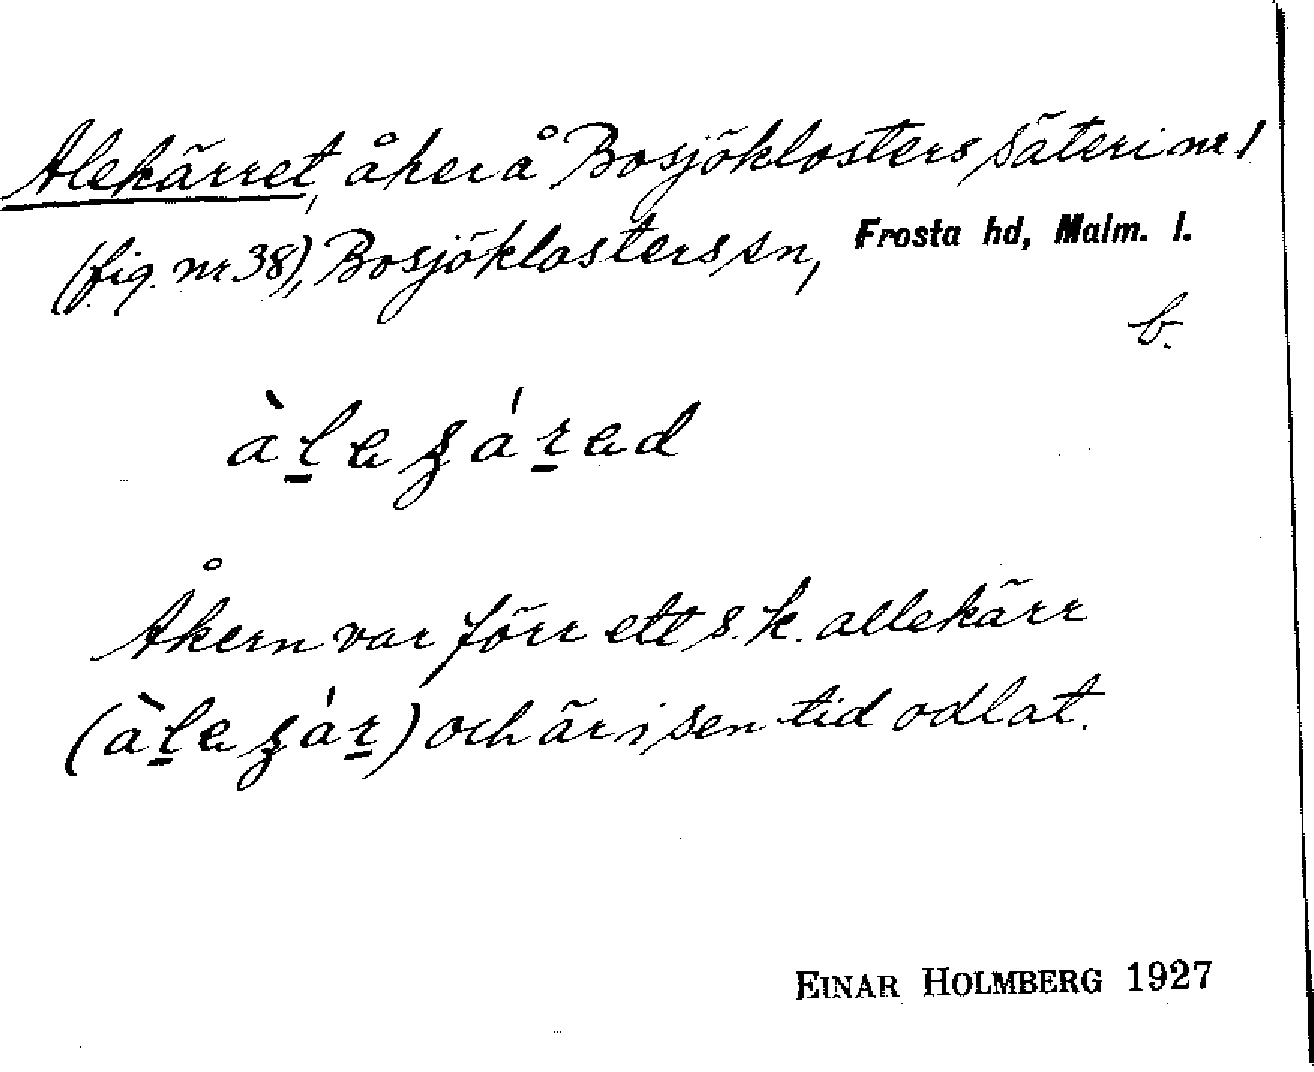 Alekärret, åker å Bosjöklosters säteri nr 1
(fig. nr 38), Bosjöklosters sn, Frosta hd, Malm. l.
b.
Åkern var förr ett s.k. allekärr
och är i sen tid odlat.
EINAR HOLMBERG 1927